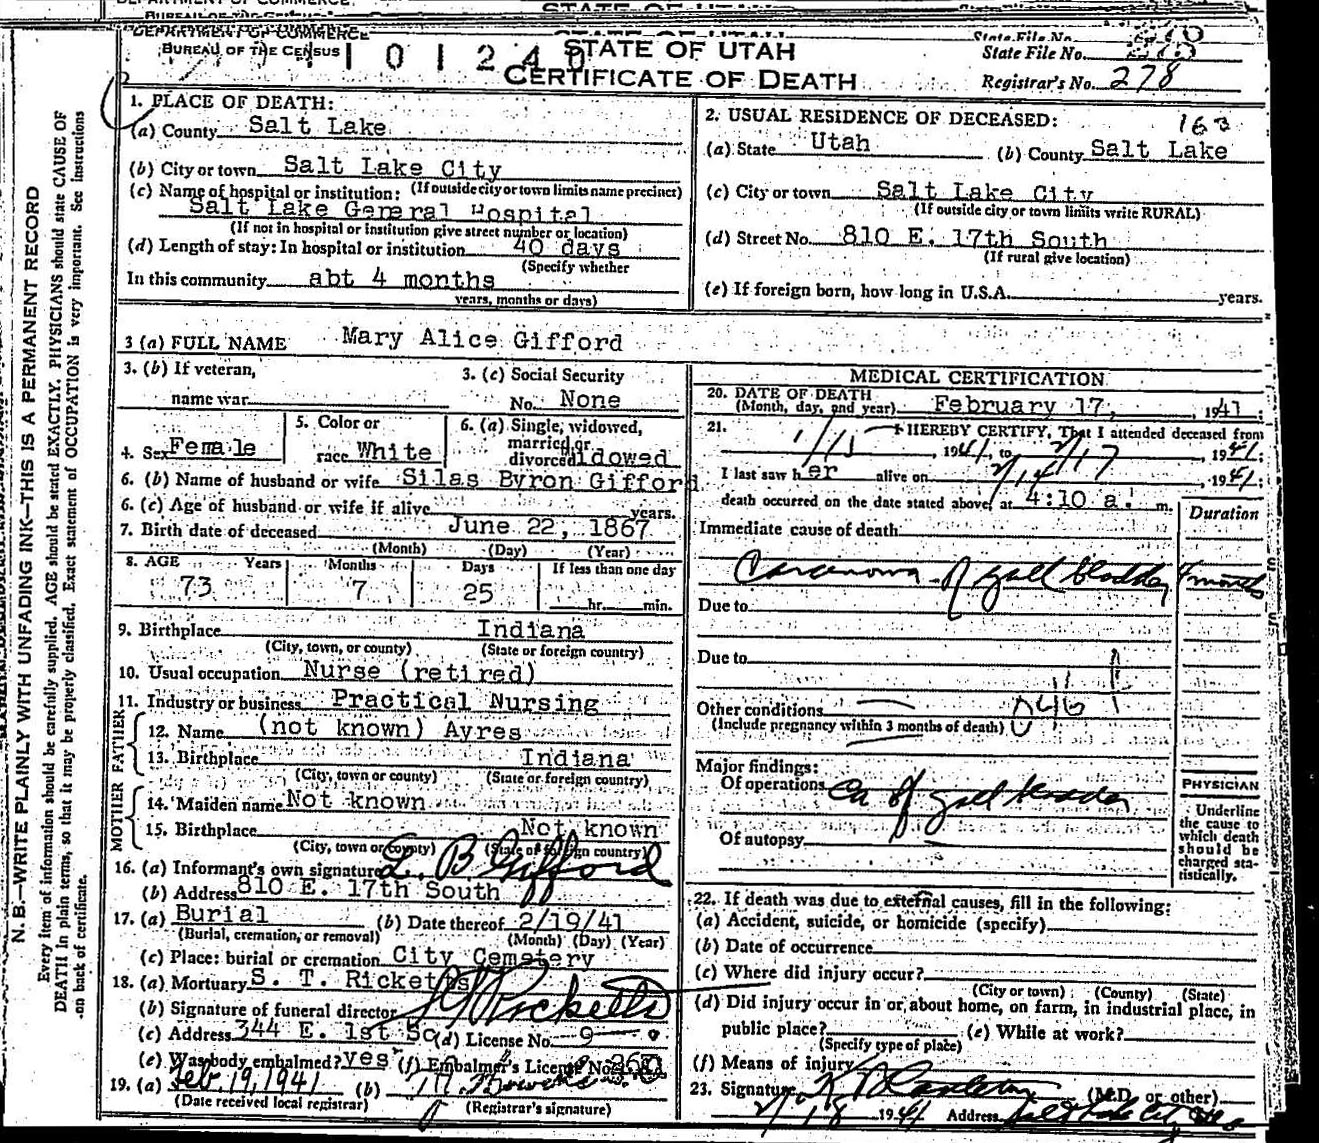 DEPARTMENT OF COMMERCE
BUREAU OF THE CENSUS
101240
STATE OF UTAH
CERTIFICATE OF DEATH
State File No.
Registrar's No. 278
N. B.—WRITE PLAINLY WITH UNFADING INK—THIS IS A PERMANENT RECORD
Every item of information should be carefully supplied. AGE should be stated EXACTLY. PHYSICIANS should state CAUSE OF
DEATH in plain terms, so that it may be properly classified. Exact statement of OCCUPATION is very important. See instructions
on back of certificate.
1. PLACE OF DEATH:
(a) County Salt Lake
(b) City or town Salt Lake City
(c) Name of hospital or institution: (If outside city or town limits name precinct)
Salt Lake General Hospital
(If not in hospital or institution give street number or location)
(d) Length of stay: In hospital or institution 40 days
(Specify whether
In this community abt 4 months
years, months or days)
2. USUAL RESIDENCE OF DECEASED: 163
(a) State Utah (b) County Salt Lake
(c) City or town Salt Lake City
(If outside city or town limits write RURAL)
(d) Street No. 810 E. 17th South
(If rural give location)
(e) If foreign born, how long in U.S.A. years.
3 (a) FULL NAME Mary Alice Gifford
3. (b) If veteran,
name war
3. (c) Social Security
No. None
4. Sex Female
5. Color or
race White
6. (a) Single, widowed,
married or
divorced idowed
6. (b) Name of husband or wife Silas Byron Gifford
6. (c) Age of husband or wife if alive years.
7. Birth date of deceased June 22, 1867
(Month) (Day) (Year)
8. AGE Years Months Days If less than one day
73 7 25 hr. min.
9. Birthplace Indiana
(City, town, or county) (State or foreign country)
10. Usual occupation Nurse (retired)
11. Industry or business Practical Nursing
FATHER
12. Name (not known) Ayres
13. Birthplace Indiana
(City, town or county) (State or foreign country)
MOTHER
14. Maiden name Not known
15. Birthplace Not known
(City, town or county) (State or foreign country)
16. (a) Informant's own signature L. B. Gifford
(b) Address 810 E. 17th South
17. (a) Burial (b) Date thereof 2/19/41
(Burial, cremation, or removal) (Month) (Day) (Year)
(c) Place: burial or cremation City Cemetery
18. (a) Mortuary S. T. Ricketts
(b) Signature of funeral director Ricketts
(c) Address 344 E. 1st So (d) License No. 9
(e) Was body embalmed? yes (f) Embalmer's License No. 260
19. (a) Feb. 19, 1941 (b)
(Date received local registrar) (Registrar's signature)
MEDICAL CERTIFICATION
20. DATE OF DEATH
(Month, day, and year) February 17, 1941
21. I HEREBY CERTIFY, That I attended deceased from
1941, to 2/17 1941;
I last saw her alive on 1941;
death occurred on the date stated above, at 4:10 a. m.
Duration
Immediate cause of death
Carcinoma of gall bladder 4 months
Due to
Due to
046
Other conditions
(Include pregnancy within 3 months of death)
Major findings:
Of operations Ca of gall bladder
Of autopsy
PHYSICIAN
Underline
the cause to
which death
should be
charged sta-
tistically.
22. If death was due to external causes, fill in the following:
(a) Accident, suicide, or homicide (specify)
(b) Date of occurrence
(c) Where did injury occur?
(City or town) (County) (State)
(d) Did injury occur in or about home, on farm, in industrial place, in
public place? (e) While at work?
(Specify type of place)
(f) Means of injury
23. Signature (M.D. or other)
2/18 1941 Address Salt Lake City